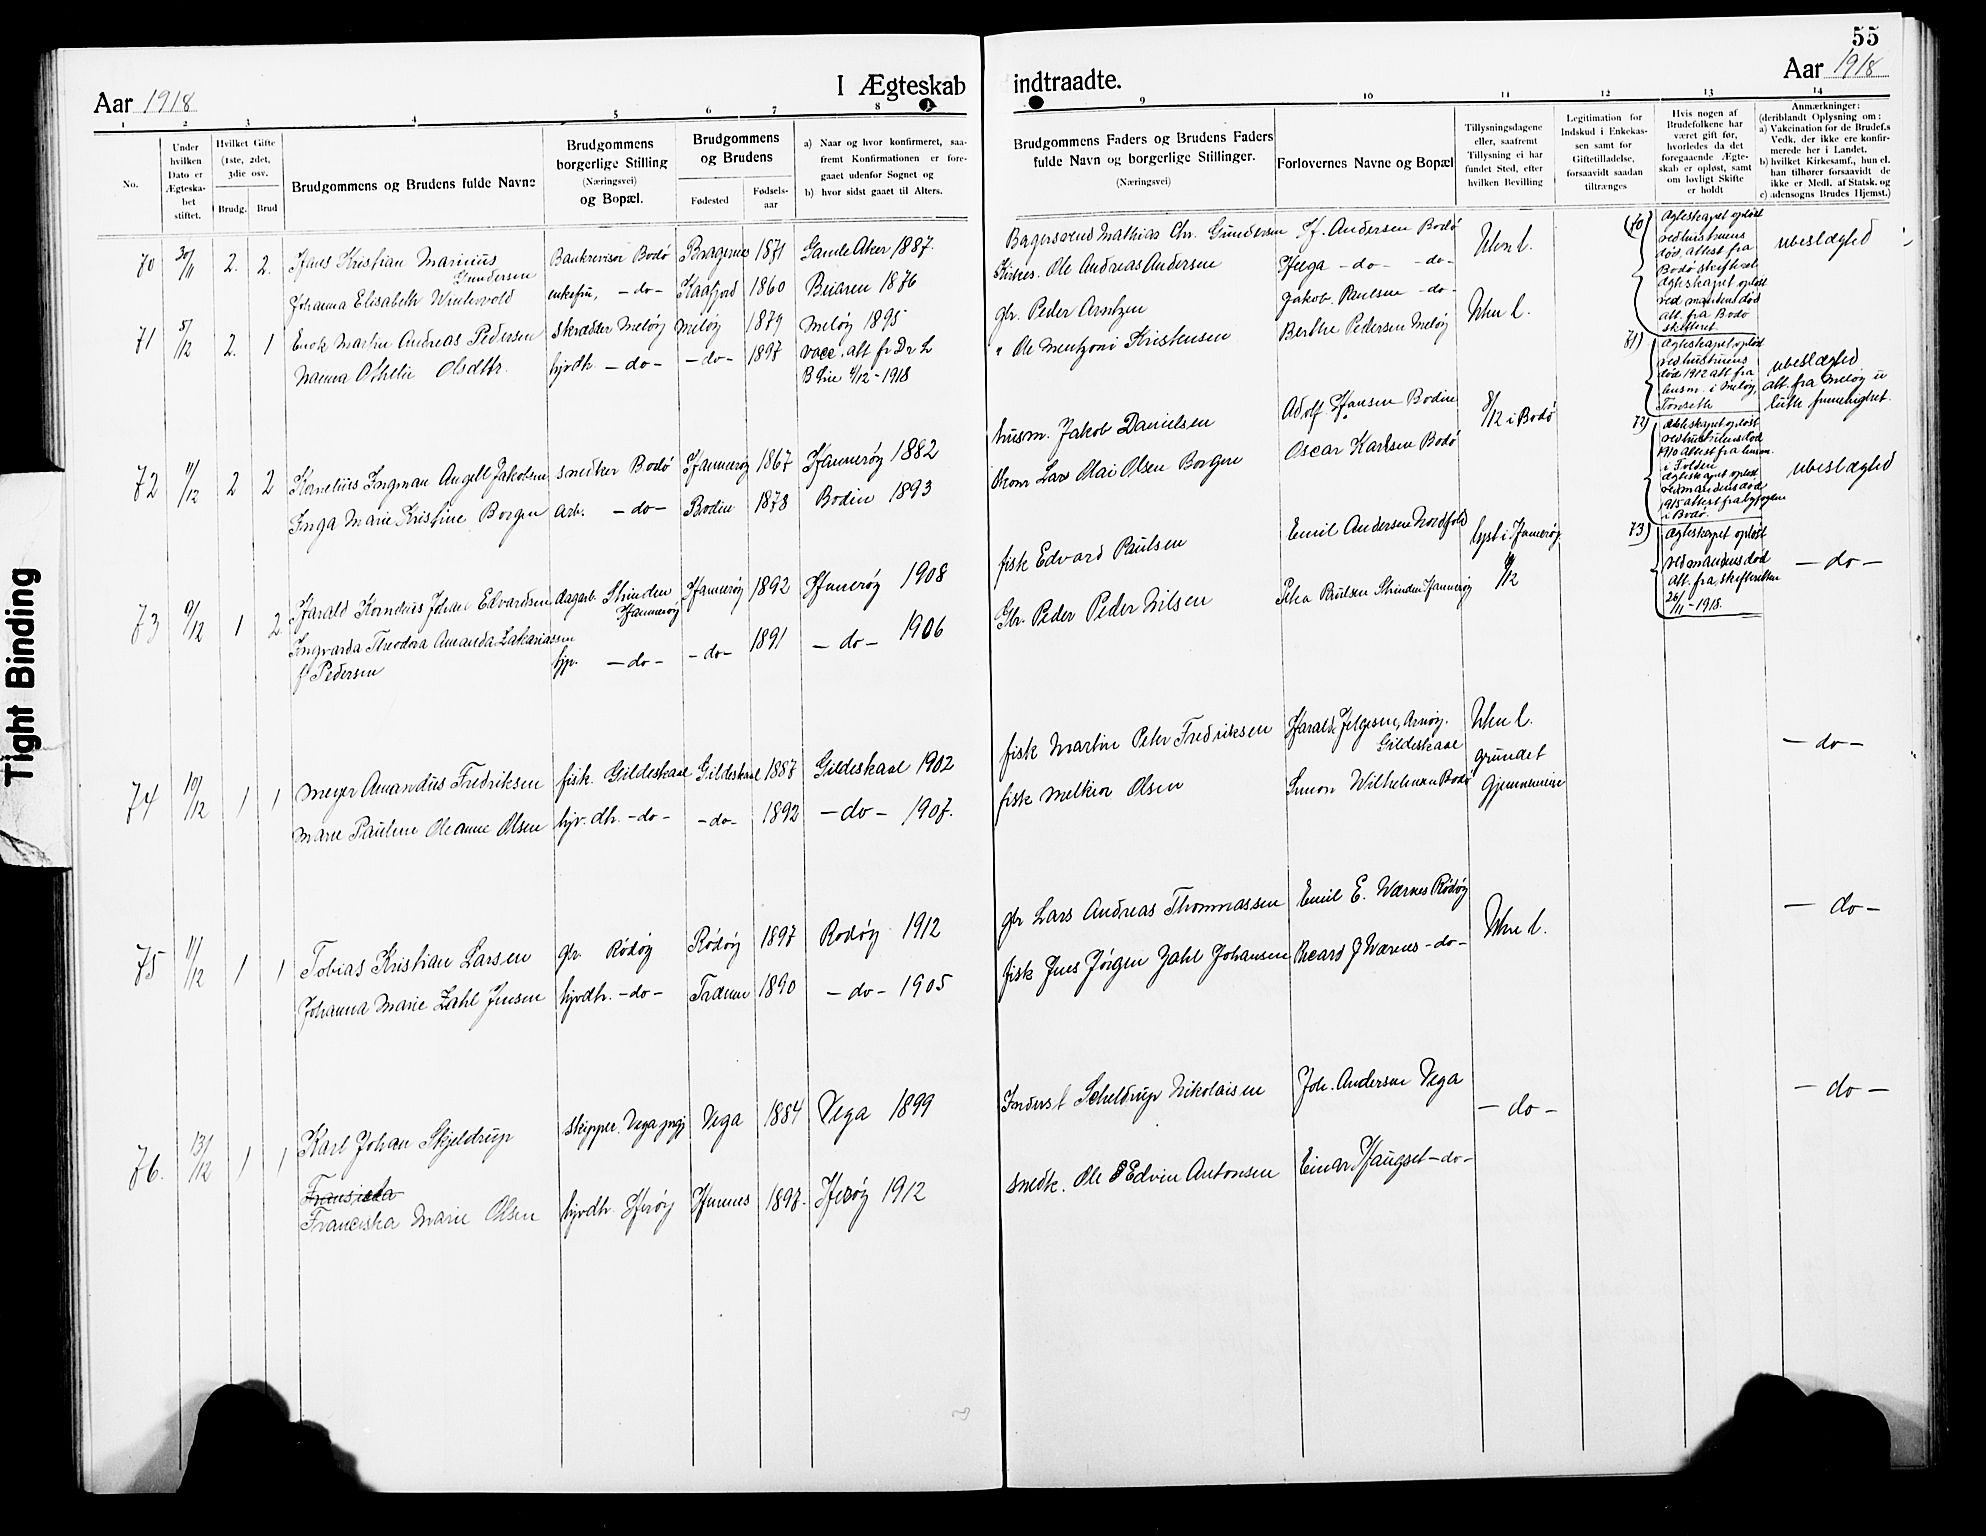 55
Aar 1918
I Ægteskab indtraadte.
Aar 1918
1 2 3 4 5 6 7 8 9 10 11 12 13 14
No.
Under hvilken Dato er Ægteskabet stiftet.
Hvilket Gifte (1ste, 2det, 3die osv.
Brudg. Brud
Brudgommens og Brudens fulde Navne
Brudgommens borgerlige Stilling (Næringsvei) og Bopæl.
Brudgommens og Brudens
Fødested
Fødselsaar
a) Naar og hvor konfirmeret, saafremt Konfirmationen er foregaaet udenfor Sognet og
b) hvor sidst gaaet til Alters.
Brudgommens Faders og Brudens Faders fulde Navn og borgerlige Stillinger.
(Næringsvei)
Forlovernes Navne og Bopæl
Tillysningsdagene eller, saafremt Tillysning ei har fundet Sted, efter hvilken Bevilling
Legitimation for Indskud i Enkekassen samt for Giftetilladelse, forsaavidt saadan tiltrænges
Hvis nogen af Brudefolkene har været gift før, hvorledes da det foregaaende Ægteskab er opløst, samt om lovligt Skifte er holdt
Anmærkninger:
(deriblandt Oplysning om:
a) Vakcination for de Brudef.s Vedk. der ikke ere konfirmerede her i Landet.
b) hvilket Kirkesamf., hun el. han tilhører forsaavidt de ikke er Medl. af Statsk. og
c) udensogns Brudes Hjemst.)
70 30/11 2. 2. Hans Kristian Marinius Gundersen Bankrevisor Bodø Bragernes 1871 Gamle Aker 1887. Bagersvend Mathias Chr. Gundersen H. Andersen Bodø
Johanna Elisabeth Wintervold enkefru, -do- Kaafjord 1860 Beiaren 1876 Ole Andreas Andersen Helga -do- -do-
70) Ægteskapet opløst ved hustruens død, attest fra Bodø skifteret. Ægteskapet opløst ved mandens død att. fra Bodø skifteret.
ubeslægted
71 5/12 2. 1 Martin Andreas Pedersen skrædder Meløy Meløy 1879 Meløy 1895 gbr. Peder Arntzen Jakob Paulsen -do-
Olsdtr. hjvdh -do- -do- 1897 vacc. att fr Dr 4/12-1918 " Ole Mentzoni Kristensen Berthe Pedersen Meløy
71) Ægteskapet opløst ved hustruens død 1912 att fra lensm. i Meløy, Tonseth
ubeslægted
att. fra Meløy
72 11/12 2 2 Kornelius Ingman Angell Jakobsen snedker Bodø Hammerøy 1867 Hammerøy 1882 husm. Jakob Danielsen Adolf Hansen Bodin 8/12 i Bodø
Inga Marie Kristine Borgen arb. -do- Bodin 1873 Bodin 1893 Lars Olai Olsen Borgen Oscar Karlsen Bodø
72) ægteskapet opløst ved hustruens død 1910 attest fra lensm. i Folden ægteskapet opløst ved mandens død 1915 attest fra byfogden i Bodø.
ubeslægted
73 9/12 1 2 Harald Kornelius Johan Edvardsen dagarb. Strinden Hammerøy Hammerøy 1892 Hammerøy 1908 fisk Edvard Paulsen Emil Andersen Nordfold lyst i Hamerøy 8/12
Ingvarda Theodora Amanda Zakariassen f Pedersen hjp. -do- -do- 1891 -do- 1906 Gbr. Peder Peder Nilsen Paulsen Strinden Hammerøy
73) Ægteskapet opløst ved mandens død att. fra skifteretten 26/11-1918.
-do-
74 10/12 1 1 Meyer Amandus Fredriksen fisk. Gildeskaal Gildeskaal 1887 Gildeskaal 1902 fisk Martin Peter Fredriksen Harald Helgesen, Arnøy. Gildeskaal
Marie Pauline Oleanne Olsen hjv. dh. -do- -do- 1892 -do- 1907. fisk Melkior Olsen Simon Wilhelmsen Bodø
grundet
-do-
75 11/12 1 1 Tobias Kristian Larsen gbr Rødøy Rødøy 1897 Rødøy 1912 gbr Lars Andreas Thomassen Emil E. Wærnes Rødøy
Johanna Marie Zahl Jensen hjvdh. -do- Trænen 1890 -do- 1905 fisk Jens Jørgen Zahl Johansen Ricard J Wærnes -do-
-do-
76. 13/12 1 1 Karl Johan Skjeldrup skipper. Vega Vega 1884 Vega 1899 Inderst Scheldrup Nikolaisen Joh. Andersen Vega -do-
Fransiska
Franciska Marie Olsen hjvdh. Herøy Hemnes 1897. Herøy 1912 snedk. Ole Edvin Antonsen Einar Haugset -do-
-do-
Tight Binding